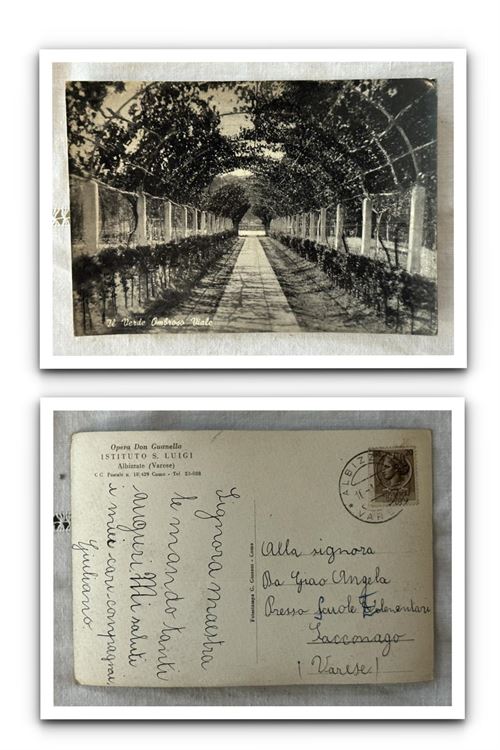 Il Verde Ombroso Viale
Opera Don Guanella
ISTITUTO S. LUIGI
Albizzate (Varese)
C.C. Postale n. 18/429 Como - Tel. 23-088
Signora maestra
le mando tanti
auguri Mi saluti
i miei cari compagni,
Giuliano
Fototampa G. Cesare - Como
ALBIZZ
VAR
Alla signora
Da Grao Angela
Presso Scuole Elementari
Sacconago
(Varese)